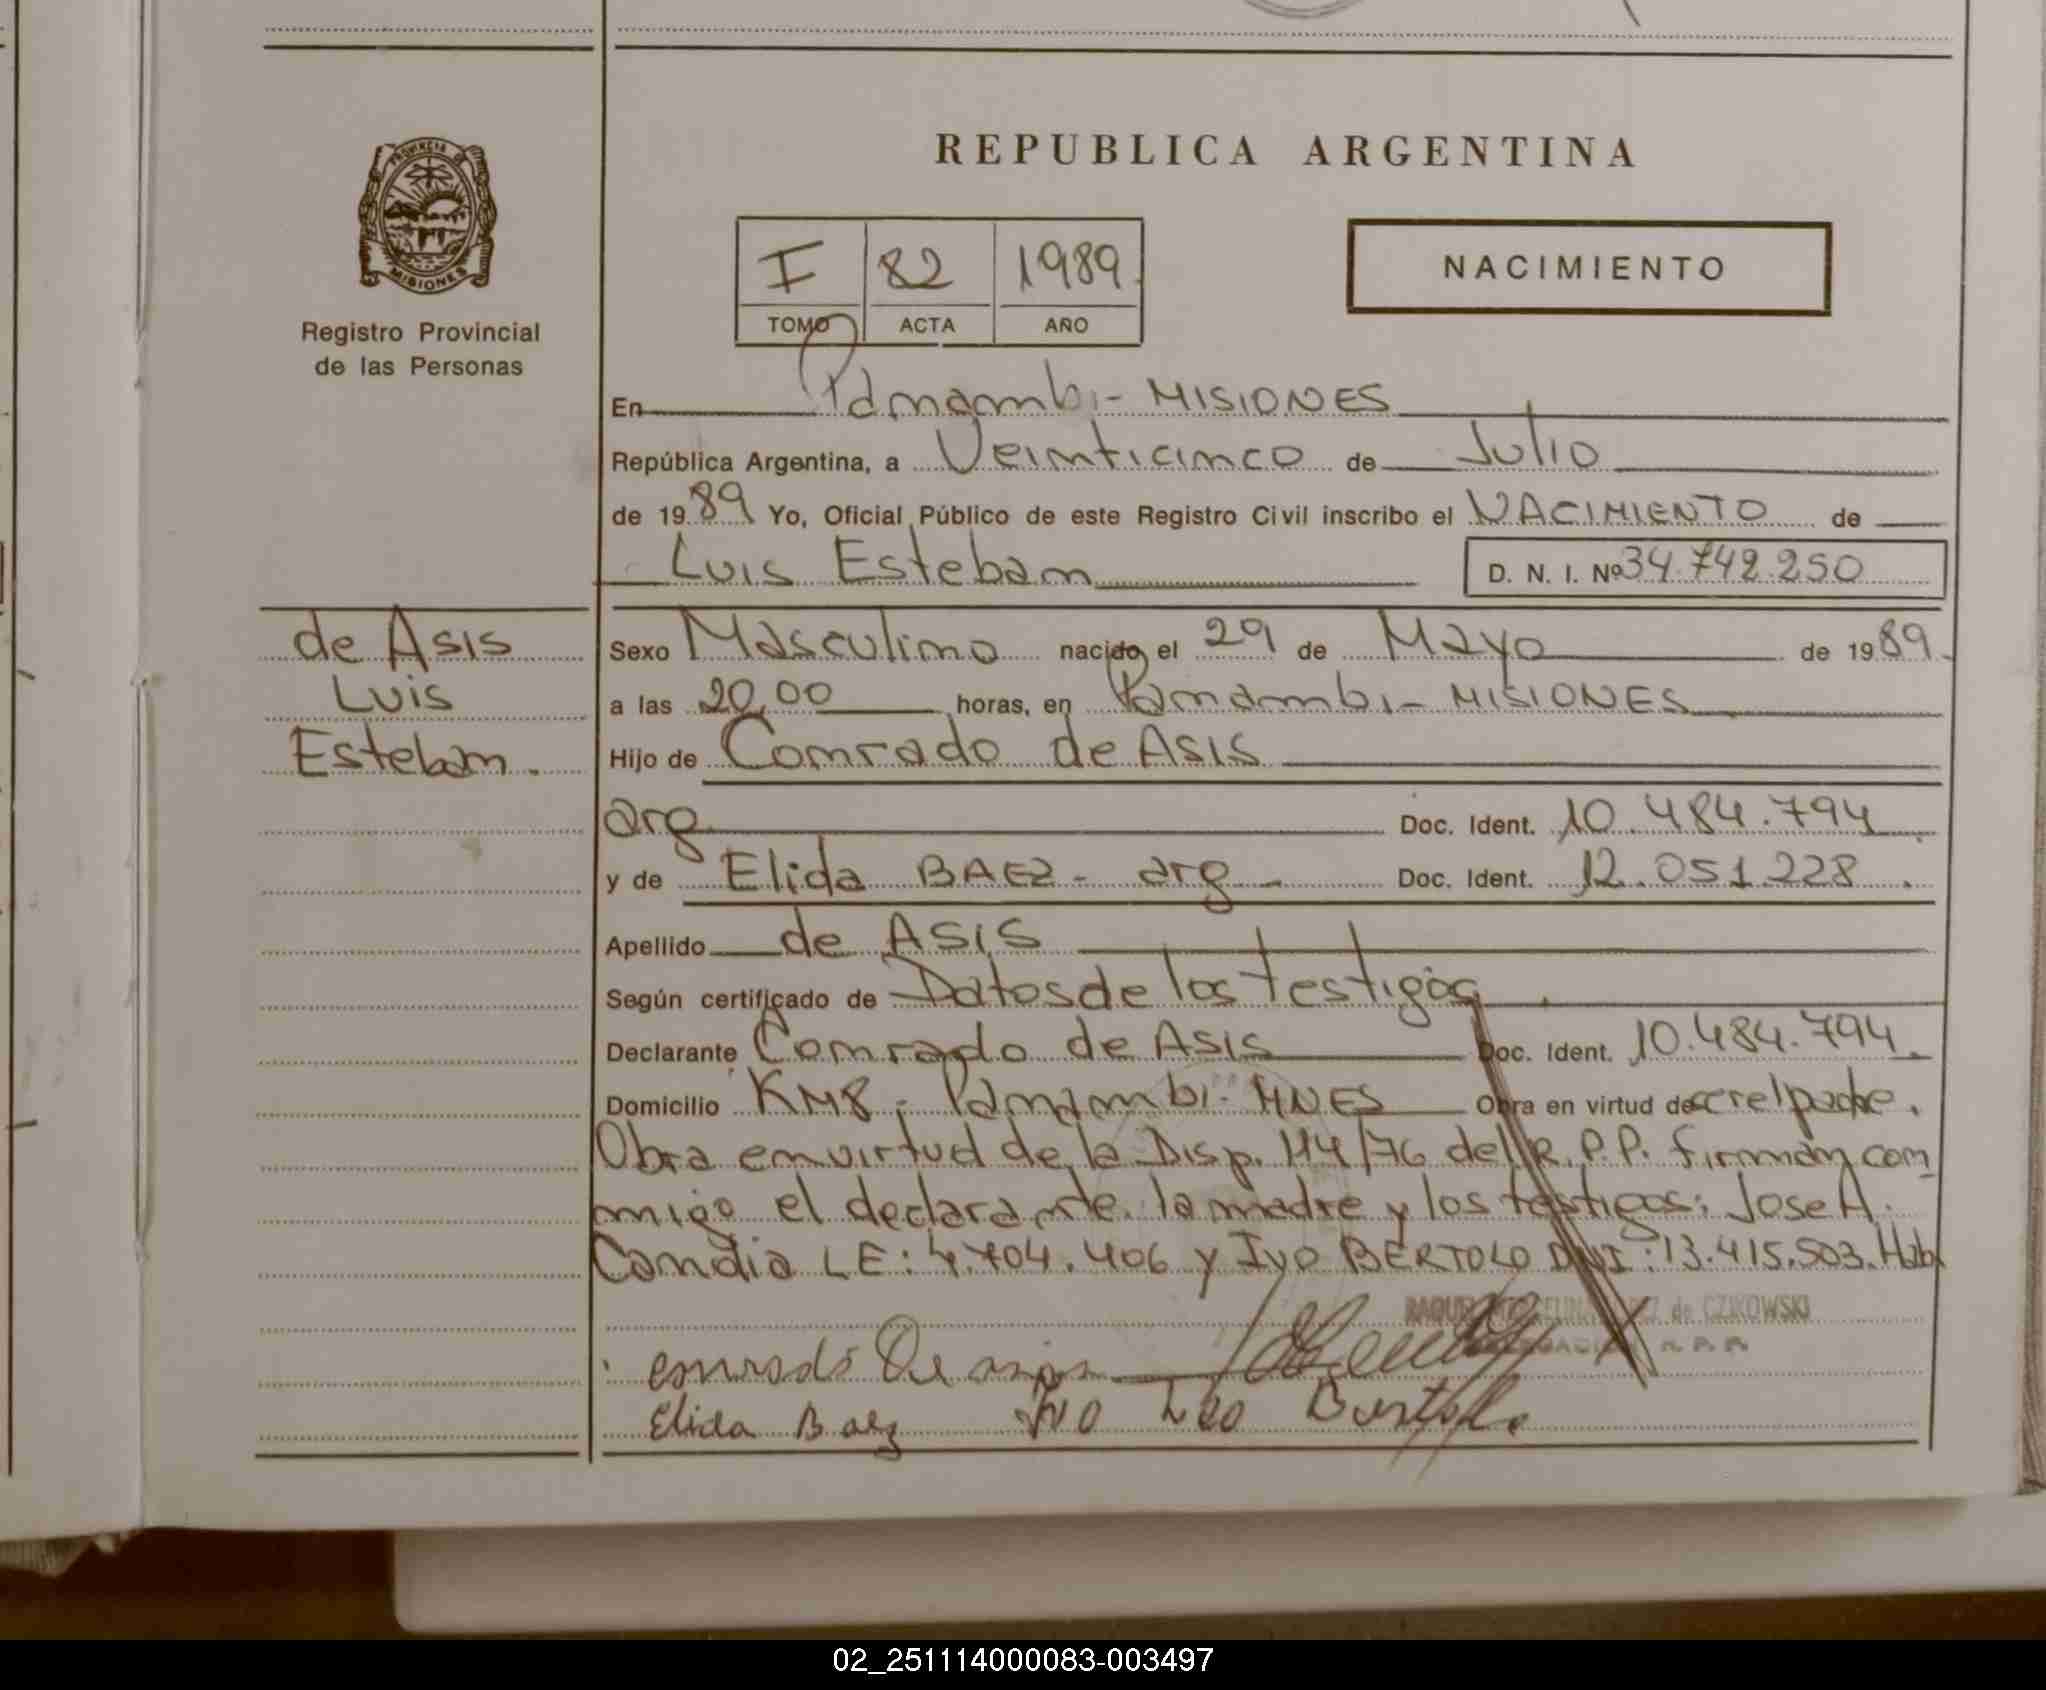 REPUBLICA ARGENTINA
PROVINCIA DE
MISIONES
Registro Provincial
de las Personas
I 82 1989
TOMO ACTA AÑO
NACIMIENTO
En Panambi - MISIONES
República Argentina, a Veinticinco de Julio
de 1989 Yo, Oficial Público de este Registro Civil inscribo el NACIMIENTO de
Luis Esteban D. N. I. Nº 34.742.250
de Asis
Luis
Esteban.
Sexo Masculino nacido el 29 de Mayo de 1989.
a las 20,00 horas, en Panambi - MISIONES
Hijo de Conrado de Asis
arg. Doc. Ident. 10.484.794.
y de Elida BAEZ - arg - Doc. Ident. 12.051.228.
Apellido de ASIS
Según certificado de Datos de los testigos
Declarante Conrado de Asis Doc. Ident. 10.484.794.
Domicilio KM8 - Panambi - MNES Obra en virtud de ser el padre.
Obra en virtud de la Disp. 114/76 del R.P.P. firman con
migo el declarante, la madre y los testigos: Jose A.
Candia LE: 4.704.406 y Ivo BERTOLO DNI: 13.415.503. Hab
de CZIKOWSKI
R. P. P.
Elida Baez Ivo Leo Bertollo
02_251114000083-003497